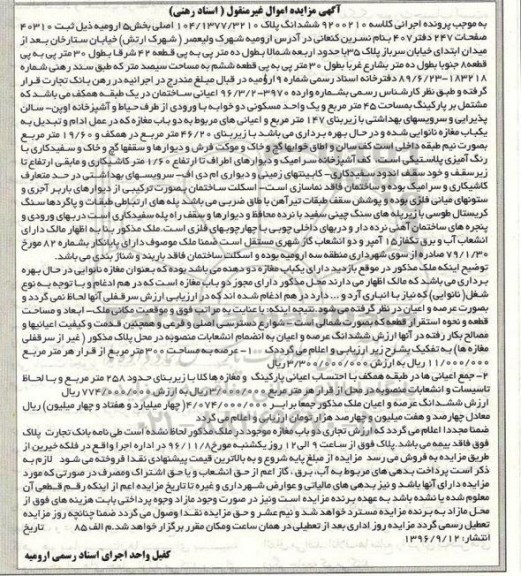 آگهی مزایده اموال غیرمنقول ( اسناد رهنی)
به موجب پرونده اجرائی کلاسه ۹۲۰۰۲۱۰ ششدانگ پلاک ۱۰۴/۱۳۷۷/۳۲۱۰ اصلی بخش۵ ارومیه ذیل ثبت ۴۰۳۱۰
صفحات ۲۴۷ دفتر۴۰۷ بنام نسرین کنعانی در آدرس ارومیه شهرک ولیعصر ( شهرک ارتش) خیابان ستارخان بعد از
میدان ابتدای خیابان سرباز پلاک ۳۵ با حدود اربعه شمالا بطول ده متر پی به پی قطعه ۴۲ شرقا بطول ۳۰ متر پی به پی
قطعه۸ جنوبا بطول ده متر بشارع غربا بطول ۳۰ متر پی به پی قطعه ششم به مساحت سیصد متر که طبق سند رهنی شماره
۱۸۳۲۱۸-۸۹/۶/۲۳ دفترخانه اسناد رسمی شماره ۹ ارومیه در قبال مبلغ مندرج در اجرائیه در رهن بانک تجارت قرار
گرفته و طبق نظر کارشناس رسمی بشماره وارده ۳۹۷۰-۹۶/۳/۲ اعیانی ساختمان در یک طبقه همکف می باشد که
مشتمل بر پارکینگ بمساحت ۴۵ متر مربع و یک واحد مسکونی دو خوابه با ورودی از طرف حیاط و آشپزخانه اوپن- سالن
پذیرایی و سرویسهای بهداشتی با زیربنای ۱۴۷ متر مربع و اعیانی های مربوط به دو باب مغازه که در عمل ادام و تبدیل به
یکباب مغازه نانوایی شده و در حال بهره برداری می باشد با زیربنای ۴۶/۲۰ متر مربع در همکف و ۱۹/۶۰ متر مربع
بصورت نیم طبقه داخلی است کف سالن و اطاق خوابها گچ و خاک و موکت فرش و دیوارها و سقفها گچ و خاک و سفیدکاری با
رنگ آمیزی پلاستیکی است، کف آشپزخانه سرامیک و دیوارهای اطراف تا ارتفاع ۱/۶۰ متر کاشیکاری و مابقی ارتفاع تا
زیرسقف و خود سقف اندود سفیدکاری- کابینتهای زمینی و دیواری ام دی اف- سرویسهای بهداشتی در حد متعارف
کاشیکاری و سرامیک بوده و ساختمان فاقد نماسازی است- اسکلت ساختمان بصورت ترکیبی از دیوارهای باربر آجری و
ستونهای میانی فلزی بوده و پوشش سقف طبقات تیرآهن با طاق ضربی می باشد پله های ارتباطی طبقات و پاگردها سنگ
کریستال طوسی با زیرپله های سنگ چینی سفید با نرده محافظ و دیوارها و سقف راه پله سفیدکاری است دربهای ورودی و
پنجره های ساختمان آهنی نرده دار و دربهای داخلی چوبی با چهارچوبهای فلزی است.ملک مذکور بنا به اظهار مالک دارای
انشعاب آب و برق تکفاز۱۵ آمپر و دو انشعاب گاز شهری مستقل است ضمنا ملک موصوف دارای پایانکار بشماره ۸۲ مورخ
۷۹/۱/۳۰ صادره از سوی شهرداری منطقه سه ارومیه بوده و اسکلت ساختمان فاقد باربند و شناژ بندی می باشد.
توضیح اینکه ملک مذکور در موقع بازدید دارای یکباب مغازه دو دهنه می باشد بوده که بعنوان مغازه نانوایی در حال بهره
برداری می باشد که مالک اظهار می دارند محل مذکور دارای مجوز دو باب مغازه است که در هم ادغام و با توجه به نوع
شغل( نانوایی) که نیاز با انباری آرد و ... دارد در هم ادغام شده اند که در ارزیابی ارزش سرقفلی آنها لحاظ نمی گردد و
بصورت عرصه و اعیان در نظر گرفته می شود. نتیجه اینکه، با عنایت به مراتب فوق و موقعیت مکانی ملک- ابعاد و مساحت
قطعه و نحوه استقرار قطعه که بصورت شمالی است - شوارع دسترسی اصلی و فرعی و همچنین قدمت و کیفیت اعیانیها و
مصالح بکار رفته در آنها ارزش ششدانگ عرصه و اعیان به انضمام انشعابات منصوبه در محل پلاک مذکور ( غیر از سرقفلی
مغازه ها) به تفکیک بشرح زیر ارزیابی و اعلام می گردد: ۱- عرصه به مساحت ۳۰۰ متر مربع از قرار هر متر مربع
۱۱/۰۰۰/۰۰۰ ریال به ارزش ۳/۳۰۰/۰۰۰/۰۰۰ ریال
۲- جمع اعیانی ها در طبقه همکف با احتساب اعیانی پارکینگ و مغازه ها کلا با زیربنای حدود ۲۵۸ متر مربع و با لحاظ
تاسیسات و انشعابات منصوبه در محل از قرار هر متر مربع ۳/۰۰۰/۰۰۰ ریال به ارزش ۷۷۴/۰۰۰/۰۰۰ ریال
ارزش ششدانگ عرصه و اعیان ملک مذکور جمعا برابر ۴/۰۷۴/۰۰۰/۰۰۰ ( چهار میلیارد و هفتاد و چهار میلیون) ریال
معادل چهارصد و هفت میلیون و چهارصد هزار تومان ارزیابی و اعلام می گردد
ضمنا مجددا اعلام می گردد که ارزش تجاری دو باب مغازه موجود در ملک مذکور لحاظ نشده است طی نامه بانک تجارت پلاک
فوق فاقد بیمه می باشد. پلاک فوق از ساعت ۹ الی ۱۲ روز یکشنبه مورخ۹۶/۱۱/۸ در اداره اجرا واقع در فلکه خیرین از
طریق مزایده به فروش می رسد مزایده از مبلغ پایه شروع و به بالاترین قیمت پیشنهادی نقدا فروخته می شود لازم به
ذکر است پرداخت بدهی های مربوط به آب، برق، گاز اعم از حق انشعاب و یا حق اشتراک ومصرف در صورتی که مورد
مزایده دارای آنها باشد و نیز بدهی های مالیاتی و عوارض شهرداری و غیره تا تاریخ مزایده اعم از اینکه رقم قطعی آن
معلوم شده یا نشده باشد به عهده برنده مزایده است ونیز در صورت وجود مازاد وجوه پرداختی بابت هزینه های فوق از
محل مازاد به برنده مزایده مسترد خواهد شد و نیم عشر و حق مزایده نقدا وصول می گردد ضمنا چنانچه روز مزایده
تعطیل رسمی گردد مزایده روز اداری بعد از تعطیلی در همان ساعت ومکان مقرر برگزار خواهد شد.م الف ۸۵ تاریخ
انتشار: ۱۳۹۶/۹/۱۲
کفیل واحد اجرای اسناد رسمی ارومیه